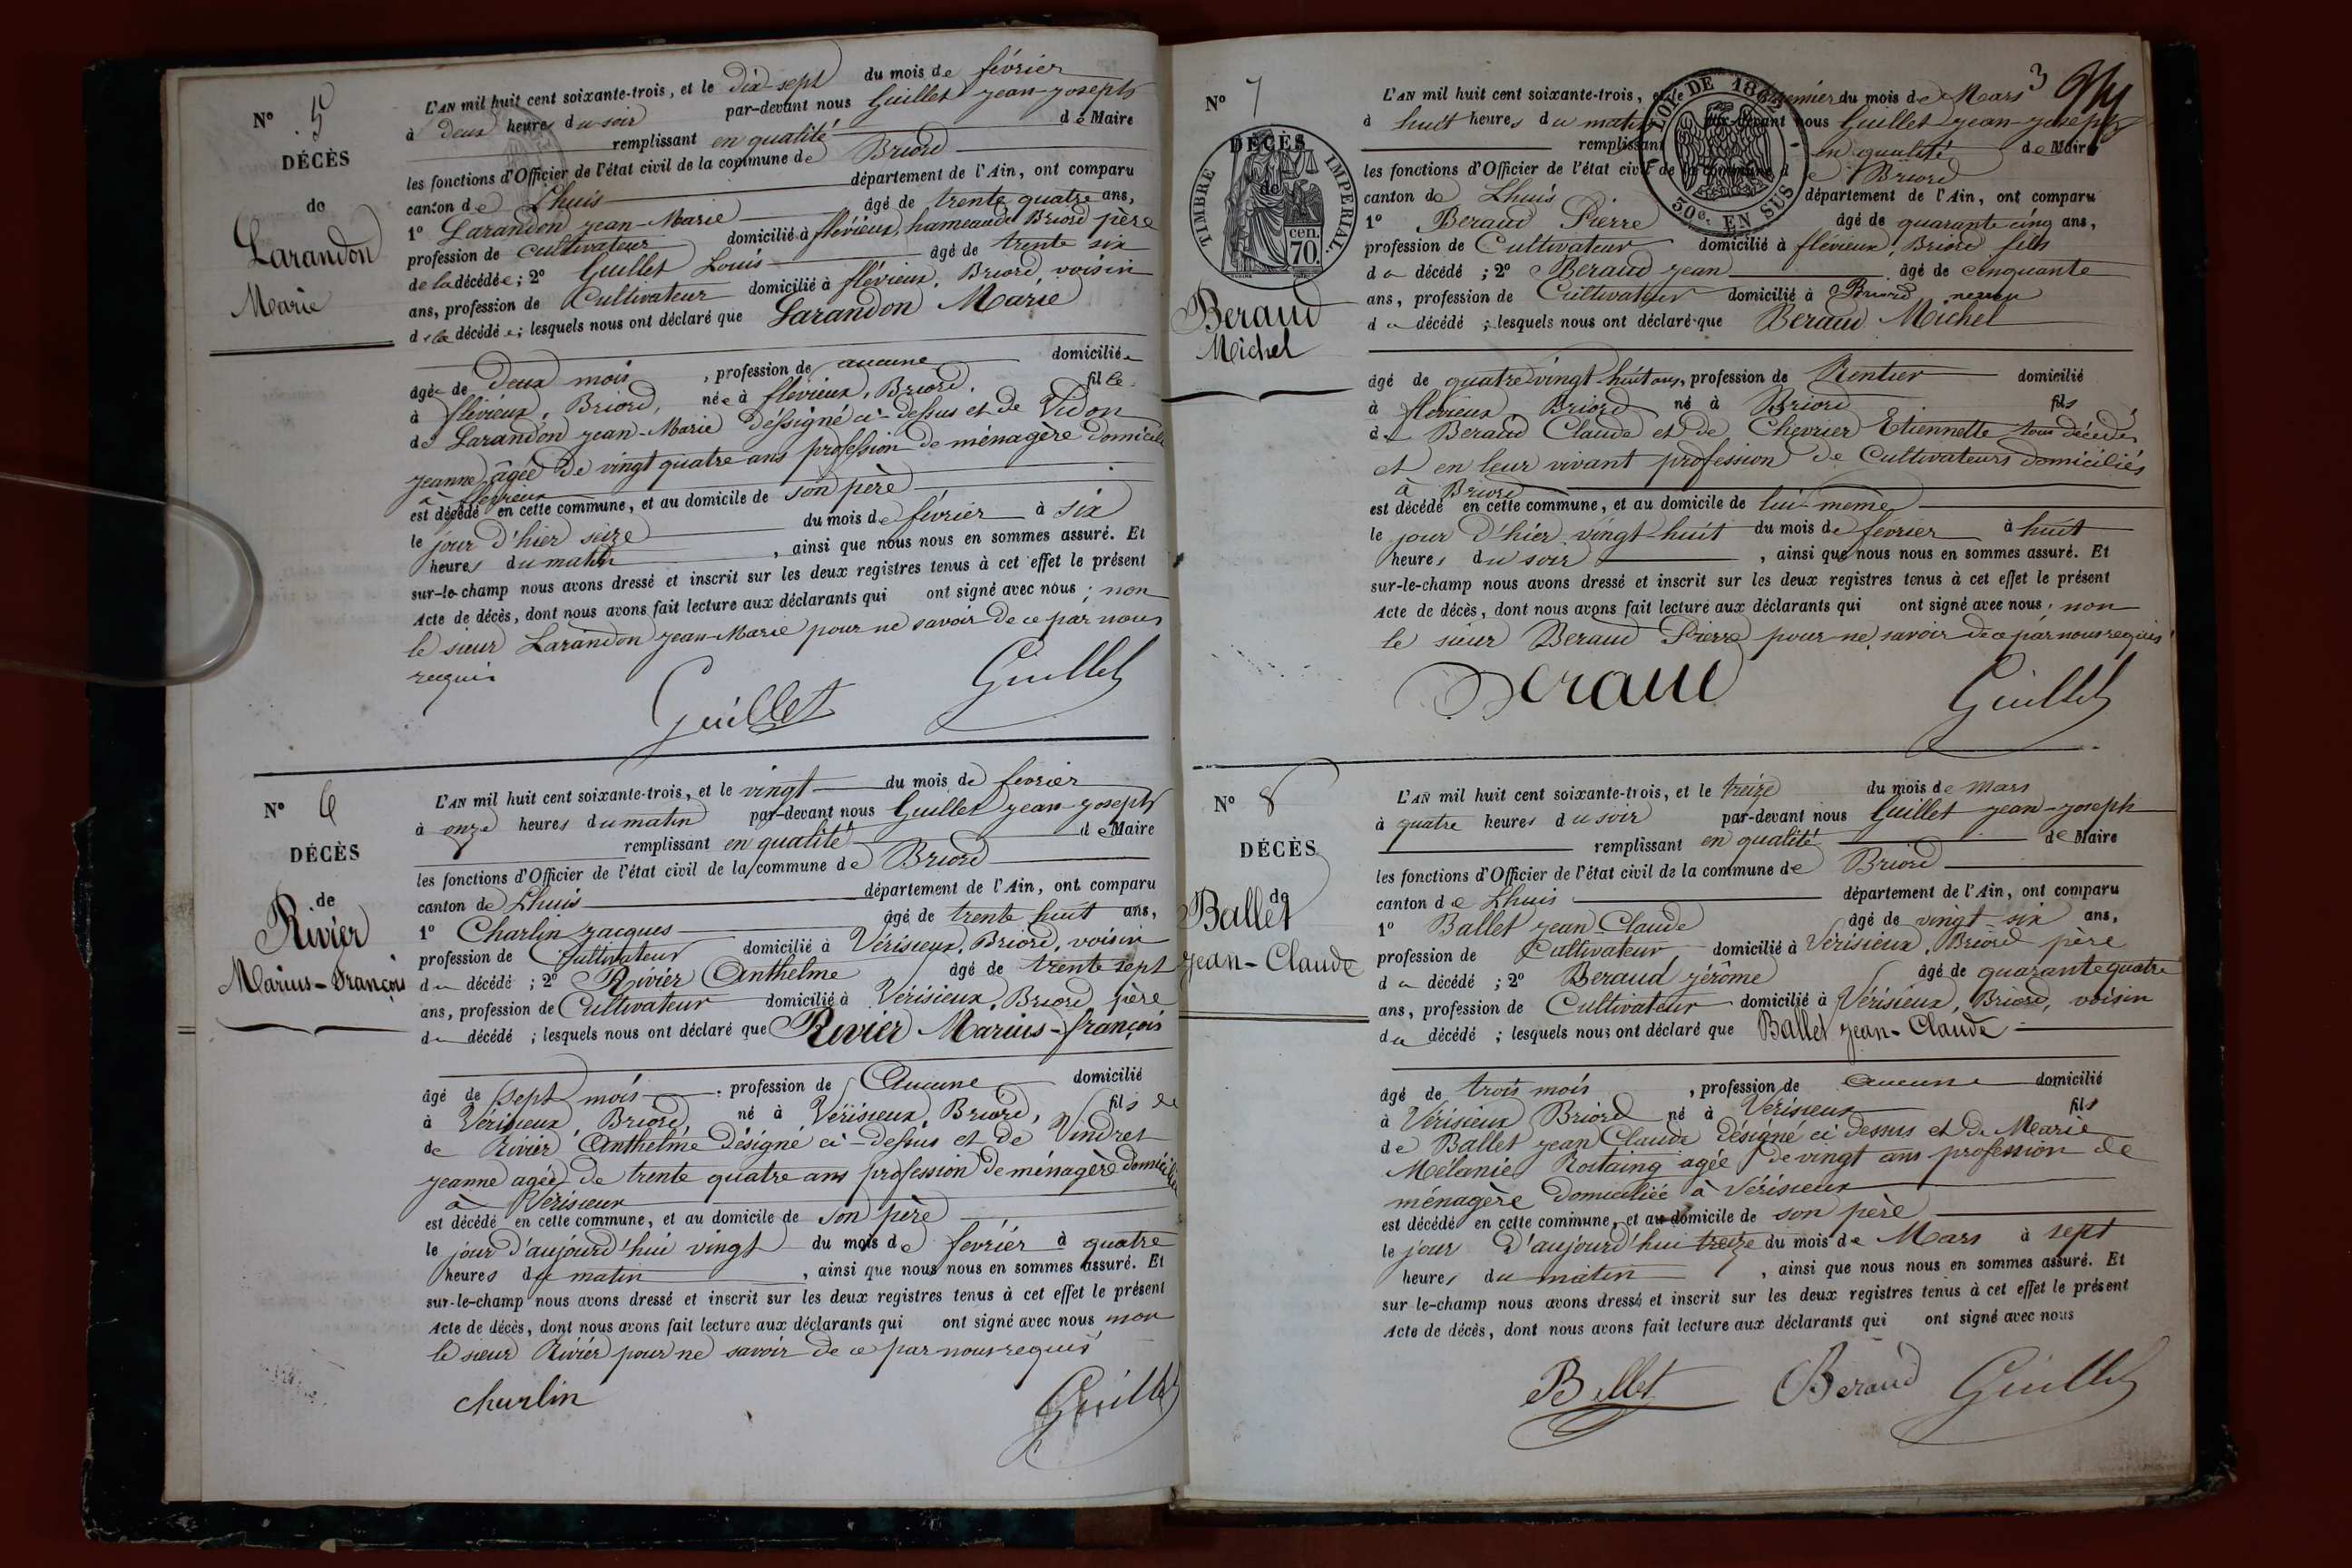 N° 5
DÉCÈS
de
Larandon
Marie
L'AN mil huit cent soixante-trois, et le dix-sept du mois de février
à deux heures du soir par-devant nous Guillet jean-joseph
remplissant en qualité de Maire
les fonctions d'Officier de l'état civil de la commune de Briord
canton de Lhuis département de l'Ain, ont comparu
1° Larandon jean-Marie âgé de trente quatre ans,
profession de cultivateur domicilié à flévieux, hameau de Briord père
de la décédée; 2° Guillet Louis âgé de trente six
ans, profession de Cultivateur domicilié à flévieux, Briord, voisin
de la décédée; lesquels nous ont déclaré que Larandon Marie
âgée de deux mois, profession de aucune domiciliée
à flévieux, Briord, née à flévieux, Briord, fille
de Larandon jean-Marie déssigné ci-dessus et de Vidon
jeanne âgée de vingt quatre ans profession de ménagère domiciliée
à flévieux
est décédé en cette commune, et au domicile de son père
le jour d'hier seize du mois de février à six
heures du matin, ainsi que nous nous en sommes assuré. Et
sur-le-champ nous avons dressé et inscrit sur les deux registres tenus à cet effet le présent
Acte de décès, dont nous avons fait lecture aux déclarants qui ont signé avec nous; non
le sieur Larandon jean-Marie pour ne savoir de ce par nous
requis
Guillet Guillet
N° 6
DÉCÈS
de
Rivier
Marius-François
L'AN mil huit cent soixante-trois, et le vingt du mois de fevrier
à onze heures du matin par-devant nous Guillet jean-joseph
remplissant en qualité de Maire
les fonctions d'Officier de l'état civil de la commune de Briord
canton de Lhuis département de l'Ain, ont comparu
1° Charlin jacques âgé de trente huit ans,
profession de Cultivateur domicilié à Vérisieux, Briord, voisin
du décédé; 2° Rivier Anthelme âgé de trente sept
ans, profession de Cultivateur domicilié à Vérisieux, Briord, père
du décédé; lesquels nous ont déclaré que Rivier Marius-françois
âgé de sept mois, profession de Aucune domicilié
à Vérisieux, Briord, né à Vérisieux, Briord, fils de
de Rivier Anthelme désigné ci-dessus et de Vindret
jeanne agée de trente quatre ans profession de ménagère domiciliée
à Vérisieux
est décédé en cette commune, et au domicile de son père
le jour d'aujourd'hui vingt du mois de fevrier à quatre
heures du matin, ainsi que nous nous en sommes assuré. Et
sur-le-champ nous avons dressé et inscrit sur les deux registres tenus à cet effet le présent
Acte de décès, dont nous avons fait lecture aux déclarants qui ont signé avec nous non
le sieur Rivier pour ne savoir de ce par nous requis
charlin Guillet
3
N° 7
DÉCÈS
de
TIMBRE IMPÉRIAL.
cen. 70.
Beraud
Michel
LOI DE 1862
50c. EN SUS
L'AN mil huit cent soixante-trois, et le premier du mois de Mars
à huit heures du matin par-devant nous Guillet jean-joseph
remplissant en qualité de Maire
les fonctions d'Officier de l'état civil de la commune de Briord
canton de Lhuis département de l'Ain, ont comparu
1° Beraud Pierre âgé de quarante cinq ans,
profession de Cultivateur domicilié à flévieux, Briord fils
du décédé; 2° Beraud jean âgé de cinquante
ans, profession de Cultivateur domicilié à Briord neveu
du décédé; lesquels nous ont déclaré que Beraud Michel
âgé de quatre vingt-huit ans, profession de Rentier domicilié
à flévieux Briord né à Briord fils
de Beraud Claude et de Chevrier Etiennette tous décédés
et en leur vivant profession de Cultivateurs domiciliés
à Briord
est décédé en cette commune, et au domicile de lui-meme
le jour d'hier vingt-huit du mois de fevrier à huit
heures du soir, ainsi que nous nous en sommes assuré. Et
sur-le-champ nous avons dressé et inscrit sur les deux registres tenus à cet effet le présent
Acte de décès, dont nous avons fait lecture aux déclarants qui ont signé avec nous, non
le sieur Beraud Pierre pour ne savoir de ce par nous requis
Beraud Guillet
N° 8
DÉCÈS
de
Ballet
jean-Claude
L'AN mil huit cent soixante-trois, et le treize du mois de mars
à quatre heures du soir par-devant nous Guillet jean-joseph
remplissant en qualité de Maire
les fonctions d'Officier de l'état civil de la commune de Briord
canton de Lhuis département de l'Ain, ont comparu
1° Ballet jean Claude âgé de vingt six ans,
profession de Cultivateur domicilié à Vérisieux, Briord père
du décédé; 2° Beraud jérôme âgé de quarante quatre
ans, profession de Cultivateur domicilié à Vérisieux, Briord, voisin
du décédé; lesquels nous ont déclaré que Ballet jean-Claude
âgé de trois mois, profession de aucune domicilié
à Vérisieux Briord né à Vérisieux fils
de Ballet jean Claude désigné ci dessus et de Marie
Mélanie Rostaing agée de vingt ans profession de
ménagère domiciliée à Vérisieux
est décédé en cette commune, et au domicile de son père
le jour d'aujourd'hui treize du mois de Mars à sept
heures du matin, ainsi que nous nous en sommes assuré. Et
sur-le-champ nous avons dressé et inscrit sur les deux registres tenus à cet effet le présent
Acte de décès, dont nous avons fait lecture aux déclarants qui ont signé avec nous
Ballet Beraud Guillet